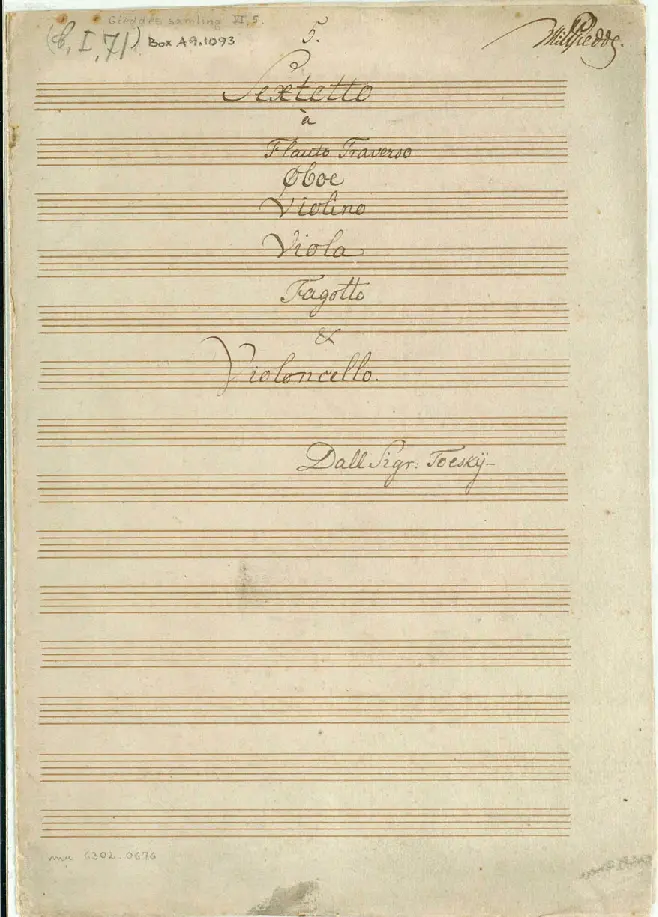 Gieddes samling VI, 5.
5.
(C, I, 71) Box A9.1093
Sextetto
à
Flauto Traverso
Oboe
Violino
Viola
Fagotto
&
Violoncello.
Dall Sigr: Toeskÿ
mu 6302.0676